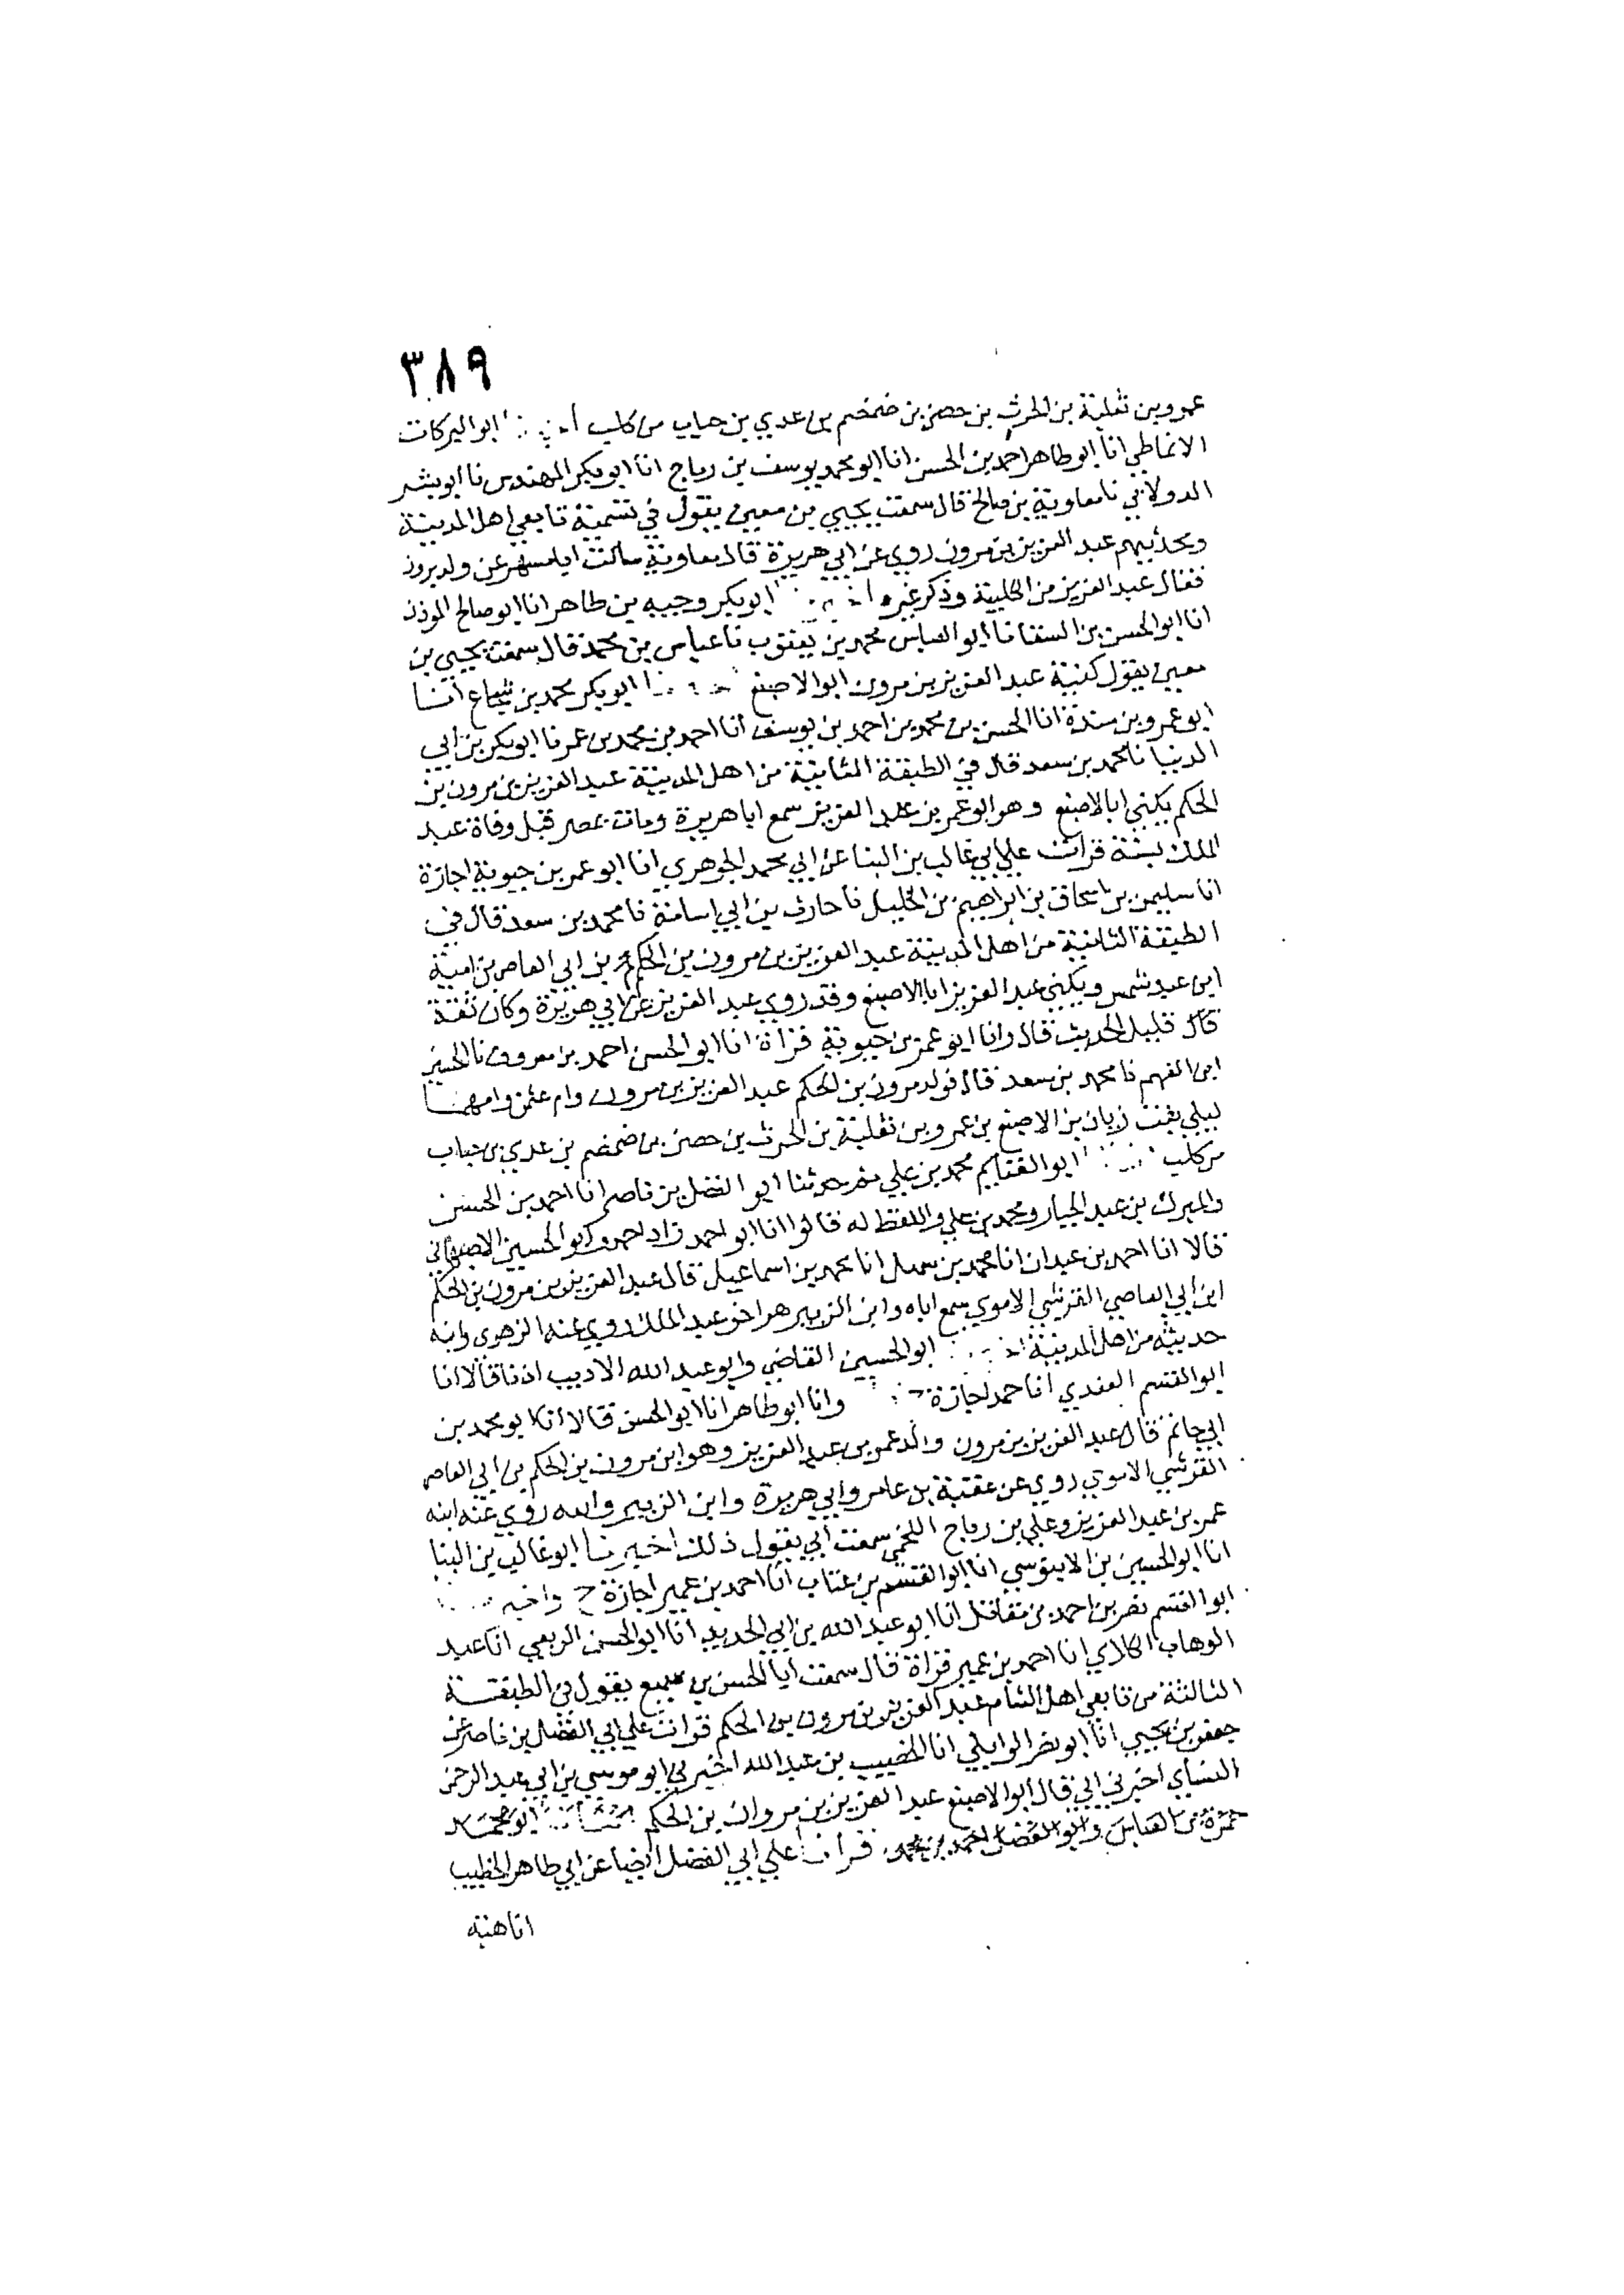 ٣٨٩
عمرو بن ثعلبة بن الحرث بن حصن بن ضمضم بن عدي بن جناب من كلب ابو البركات
الانماطي انا ابو طاهر احمد بن الحسن انا ابو محمد يوسف بن رباح انا ابو بكر المهندس نا ابو بشر
الدولابي نا معاوية بن صالح قال سمعت يحيي بن معين يقول في تسمية تابعي اهل المدينة
ومحدثيهم عبد العزيز بن مرون روي عن ابي هريرة قال معاوية سالت ابا مسهر عن ولد مرون
فقال عبد العزيز من الكلبية وذكر غيره ابو بكر وجيه بن طاهر انا ابو صالح الموذن
انا ابو الحسن بن السقا نا ابو العباس محمد بن يعقوب نا عباس بن محمد قال سمعت يحيي بن
معين يقول كنية عبد العزيز بن مرون ابو الاصبغ ابو بكر محمد بن شجاع انا
ابو عمرو بن مندة انا الحسن بن محمد بن احمد بن يوسف انا احمد بن محمد بن عمر نا ابو بكر بن ابي
الدنيا نا محمد بن سعد قال في الطبقة الثانية من اهل المدينة عبد العزيز بن مرون بن
الحكم يكني ابا الاصبغ وهو ابو عمر بن عبد العزيز سمع ابا هريرة ومات بمصر قبل وفاة عبد
الملك بسنة قرات علي ابي غالب بن البنا عن ابي محمد الجوهري انا ابو عمر بن حيوية اجازة
انا سليمن بن اسحاق بن ابراهيم بن الخليل نا حارث بن ابي اسامة نا محمد بن سعد قال في
الطبقة الثانية من اهل المدينة عبد العزيز بن مرون بن الحكم بن ابي العاص بن امية
ابن عبد شمس ويكني عبد العزيز ابا الاصبغ وقد روي عبد العزيز عن ابي هريرة وكان ثقة
قال قليل الحديث قال وانا ابو عمر بن حيوية قراة انا ابو الحسن احمد بن معروف نا الحسين
ابن الفهم نا محمد بن سعد قال فولد مرون بن الحكم عبد العزيز بن مرون وام عثمن وامهما
ليلي بنت زبان بن الاصبغ بن عمرو بن ثعلبة بن الحرث بن حصن بن ضمضم بن عدي بن جناب
من كلب ابو الغنايم محمد بن علي ثم حدثنا ابو الفضل بن ناصر انا احمد بن الحسن
والمبرك بن عبد الجبار ومحمد بن علي واللفظ له قالوا انا ابو احمد زاد احمد وابو الحسين الاصبهاني
قالا انا احمد بن عبدان انا محمد بن سهل انا محمد بن اسماعيل قال عبد العزيز بن مرون بن الحكم
ابن ابي العاصي القرشي الاموي سمع اباه وابن الزبير هو اخو عبد الملك روي عنه الزهري وابنه
حديثه من اهل المدينة ابو الحسين القاضي وابو عبد الله الاديب اذنا قالا انا
ابو القسم العبدي انا حمد اجازة ح وانا ابو طاهر انا ابو الحسن قالا انا ابو محمد بن
ابي حاتم قال عبد العزيز بن مرون والد عمر بن عبد العزيز وهو ابن مرون بن الحكم بن ابي العاص
القرشي الاموي روي عن عقبة بن عامر وابي هريرة وابن الزبير وابيه روي عنه ابنه
عمر بن عبد العزيز وعلي بن رباح اللخمي سمعت ابي يقول ذلك اخبرنا ابو غالب بن البنا
انا ابو الحسين بن الابنوسي انا ابو القسم بن عتاب انا احمد بن عمير اجازة ح واخبرنا
ابو القسم نصر بن احمد بن مقاتل انا ابو عبد الله بن ابي الحديد انا ابو الحسن الربعي انا عبد
الوهاب الكلابي انا احمد بن عمير قراة قال سمعت ابا الحسن بن سميع يقول في الطبقة
الثالثة من تابعي اهل الشام عبد العزيز بن مرون بن الحكم قرات علي ابي الفضل بن ناصر عن
جعفر بن يحيي انا ابو نصر الوايلي انا الخصيب بن عبد الله اخبرني ابو موسي بن ابي عبد الرحمن
النسأي اخبرني ابي قال ابو الاصبغ عبد العزيز بن مروان بن الحكم ابو محمد
حمزة بن العباس وابو الفضل احمد بن محمد قرات علي ابي الفضل ايضا عن ابي طاهر الخطيب
انا هبة